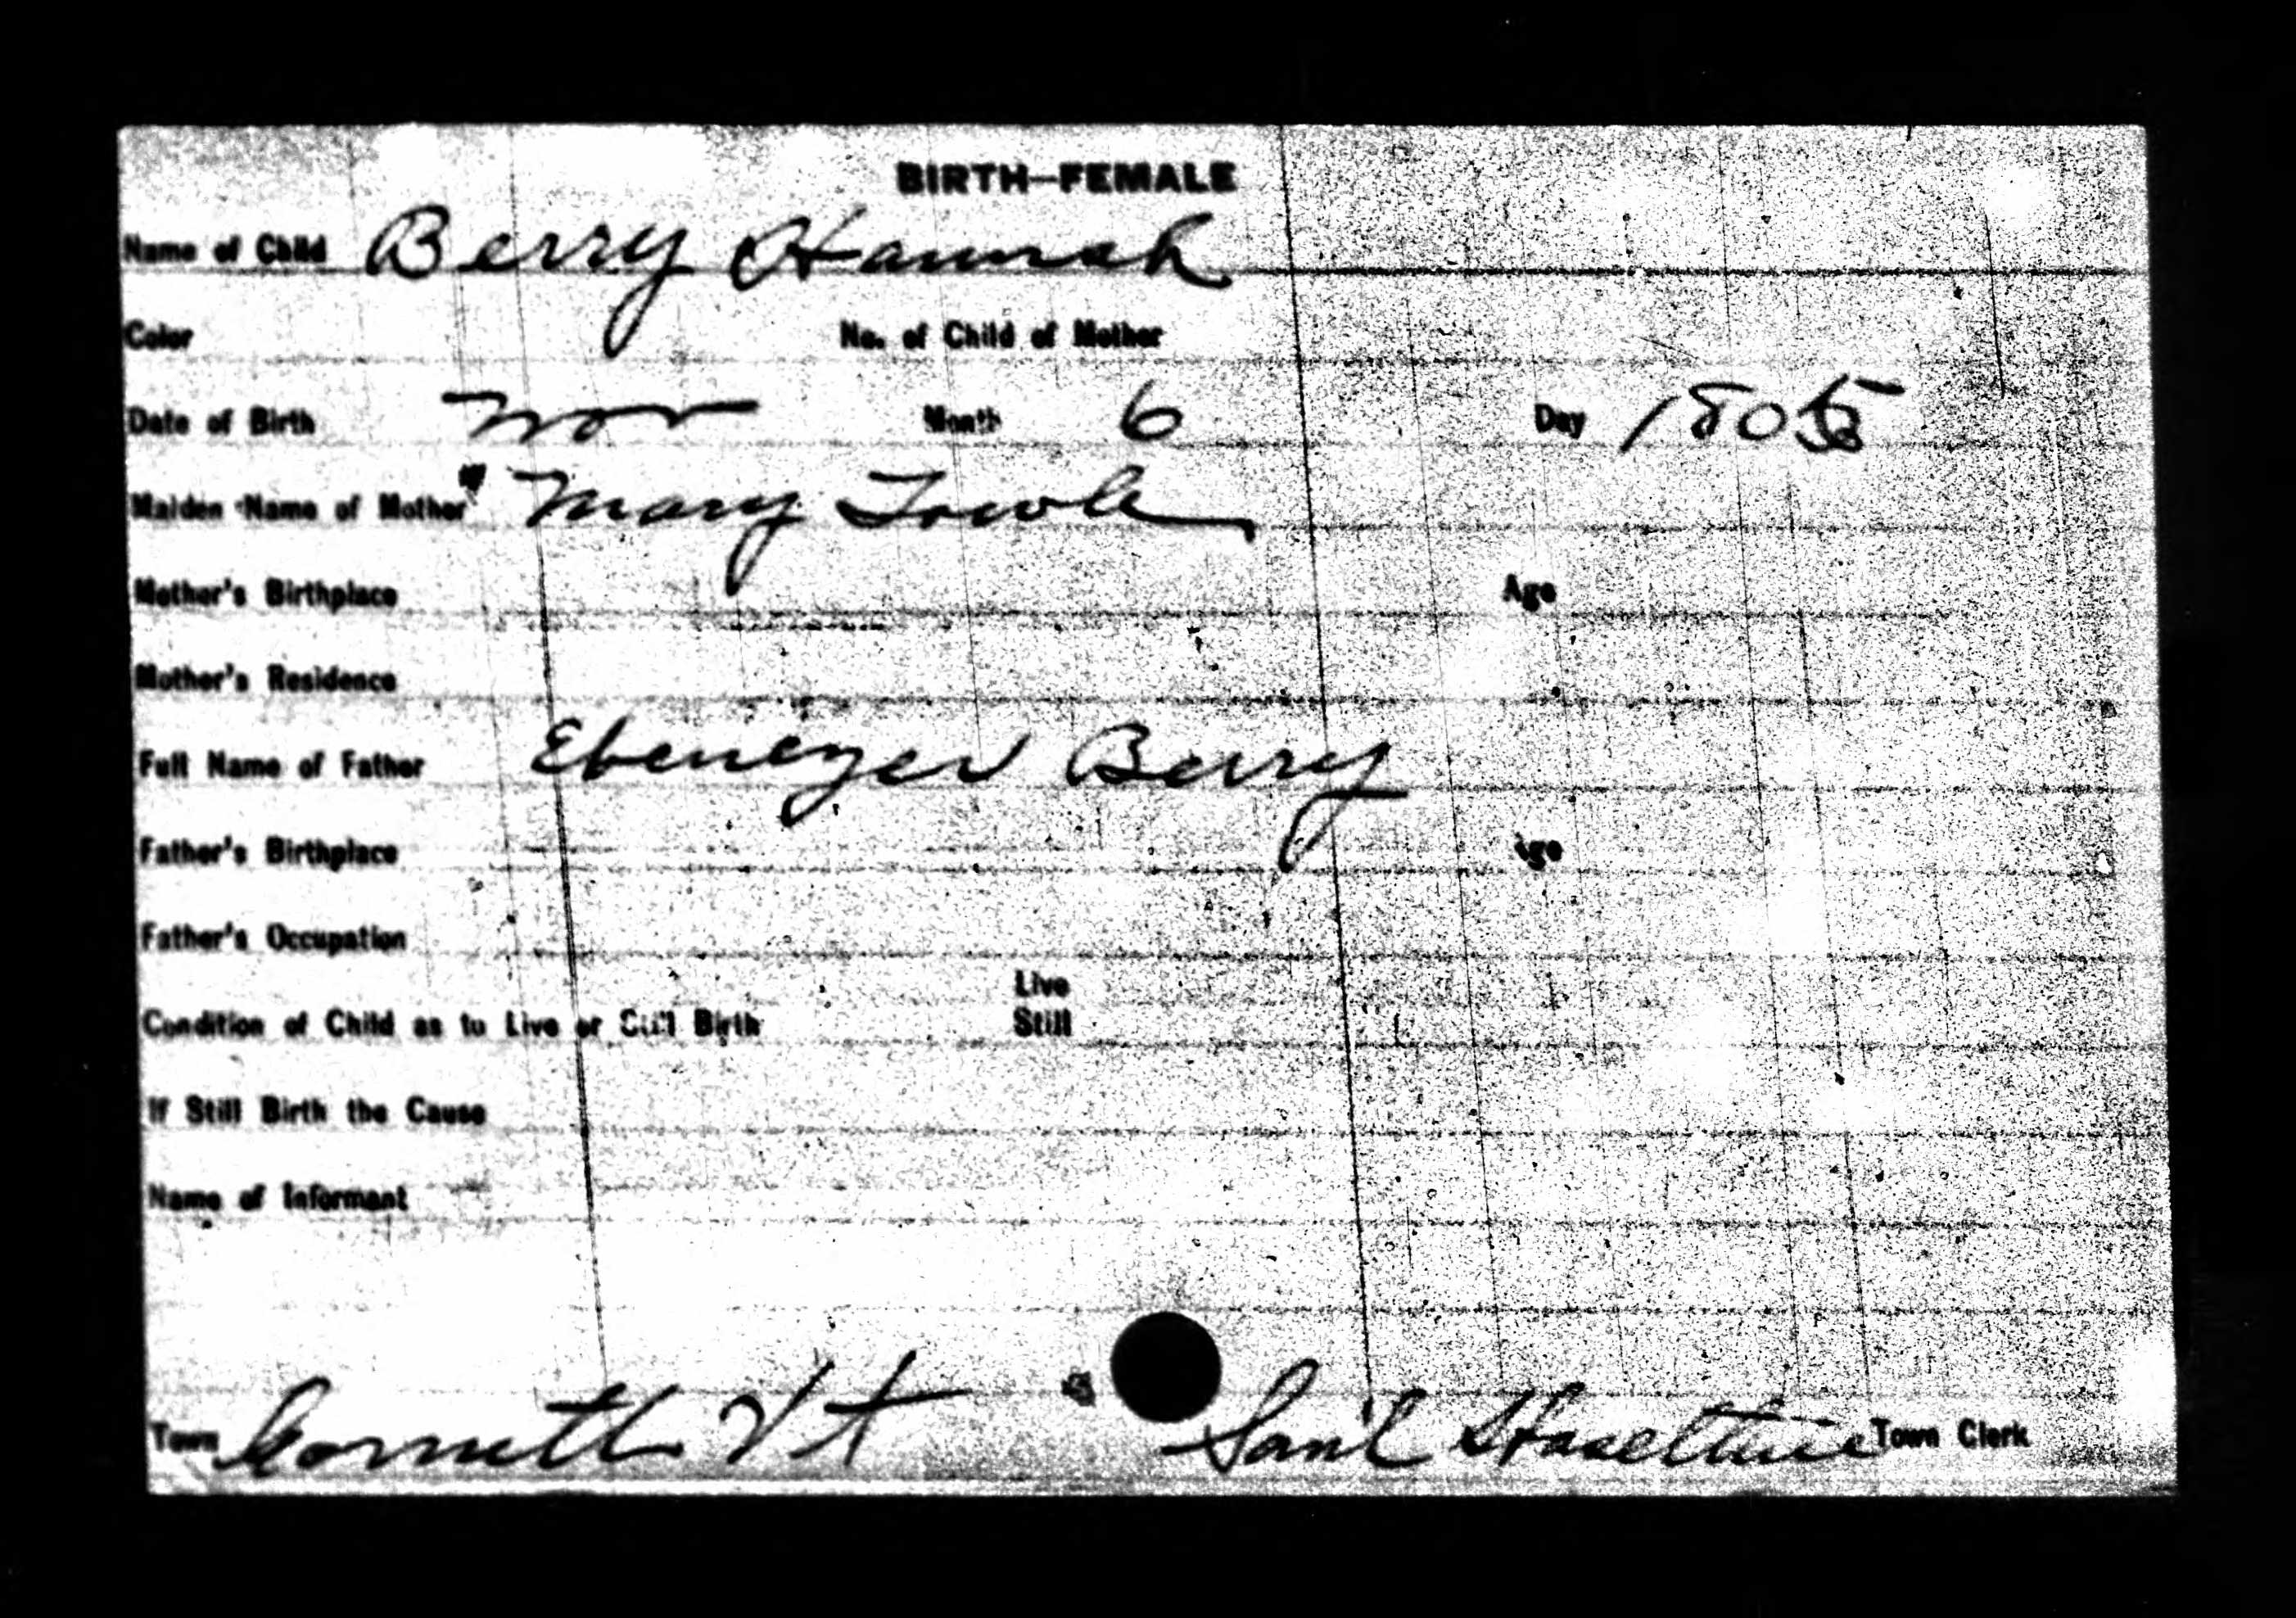 BIRTH—FEMALE
Name of Child Berry Hannah
Color No. of Child of Mother
Date of Birth Nov Month 6 Day 1805
Maiden Name of Mother Mary Towle
Mother's Birthplace Age
Mother's Residence
Full Name of Father Ebenezer Berry
Father's Birthplace Age
Father's Occupation
Live
Condition of Child as to Live or Still Birth Still
If Still Birth the Cause
Name of Informant
Town Corinth Vt Sam'l Hazeltine Town Clerk